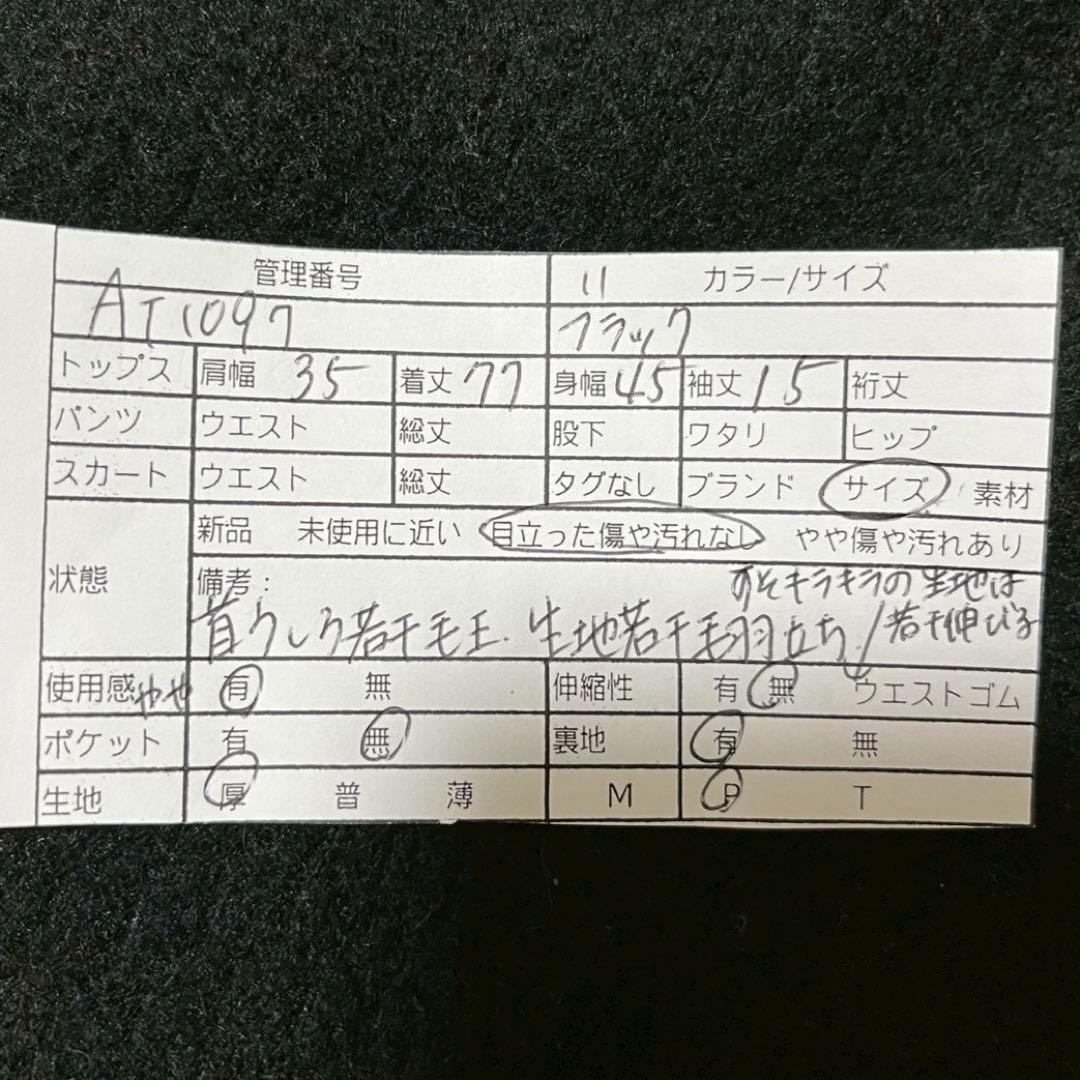 管理番号 11 カラー/サイズ
AT1097 ブラック
トップス 肩幅 35 着丈 77 身幅 45 袖丈 15 裄丈
パンツ ウエスト 総丈 股下 ワタリ ヒップ
スカート ウエスト 総丈 タグなし ブランド サイズ 素材
新品 未使用に近い 目立った傷や汚れなし やや傷や汚れあり
状態 備考: すそキラキラの生地は
首うしろ若干毛玉、生地若干毛羽立ち / 若干伸びる
使用感 やや 有 無 伸縮性 有 無 ウエストゴム
ポケット 有 無 裏地 有 無
生地 厚 普 薄 M P T